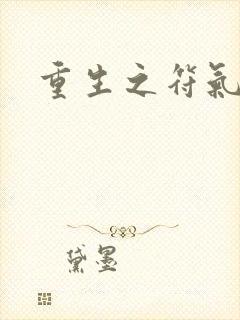 重生之符氣
黛墨